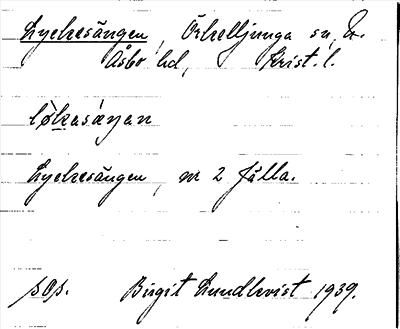 Lyckesängen, Örkelljunga sn, N.
Åsbo hd, Krist. l.
Lyckesängen, nr 2 Fålla.
sOp. Birgit Lundkvist 1939.